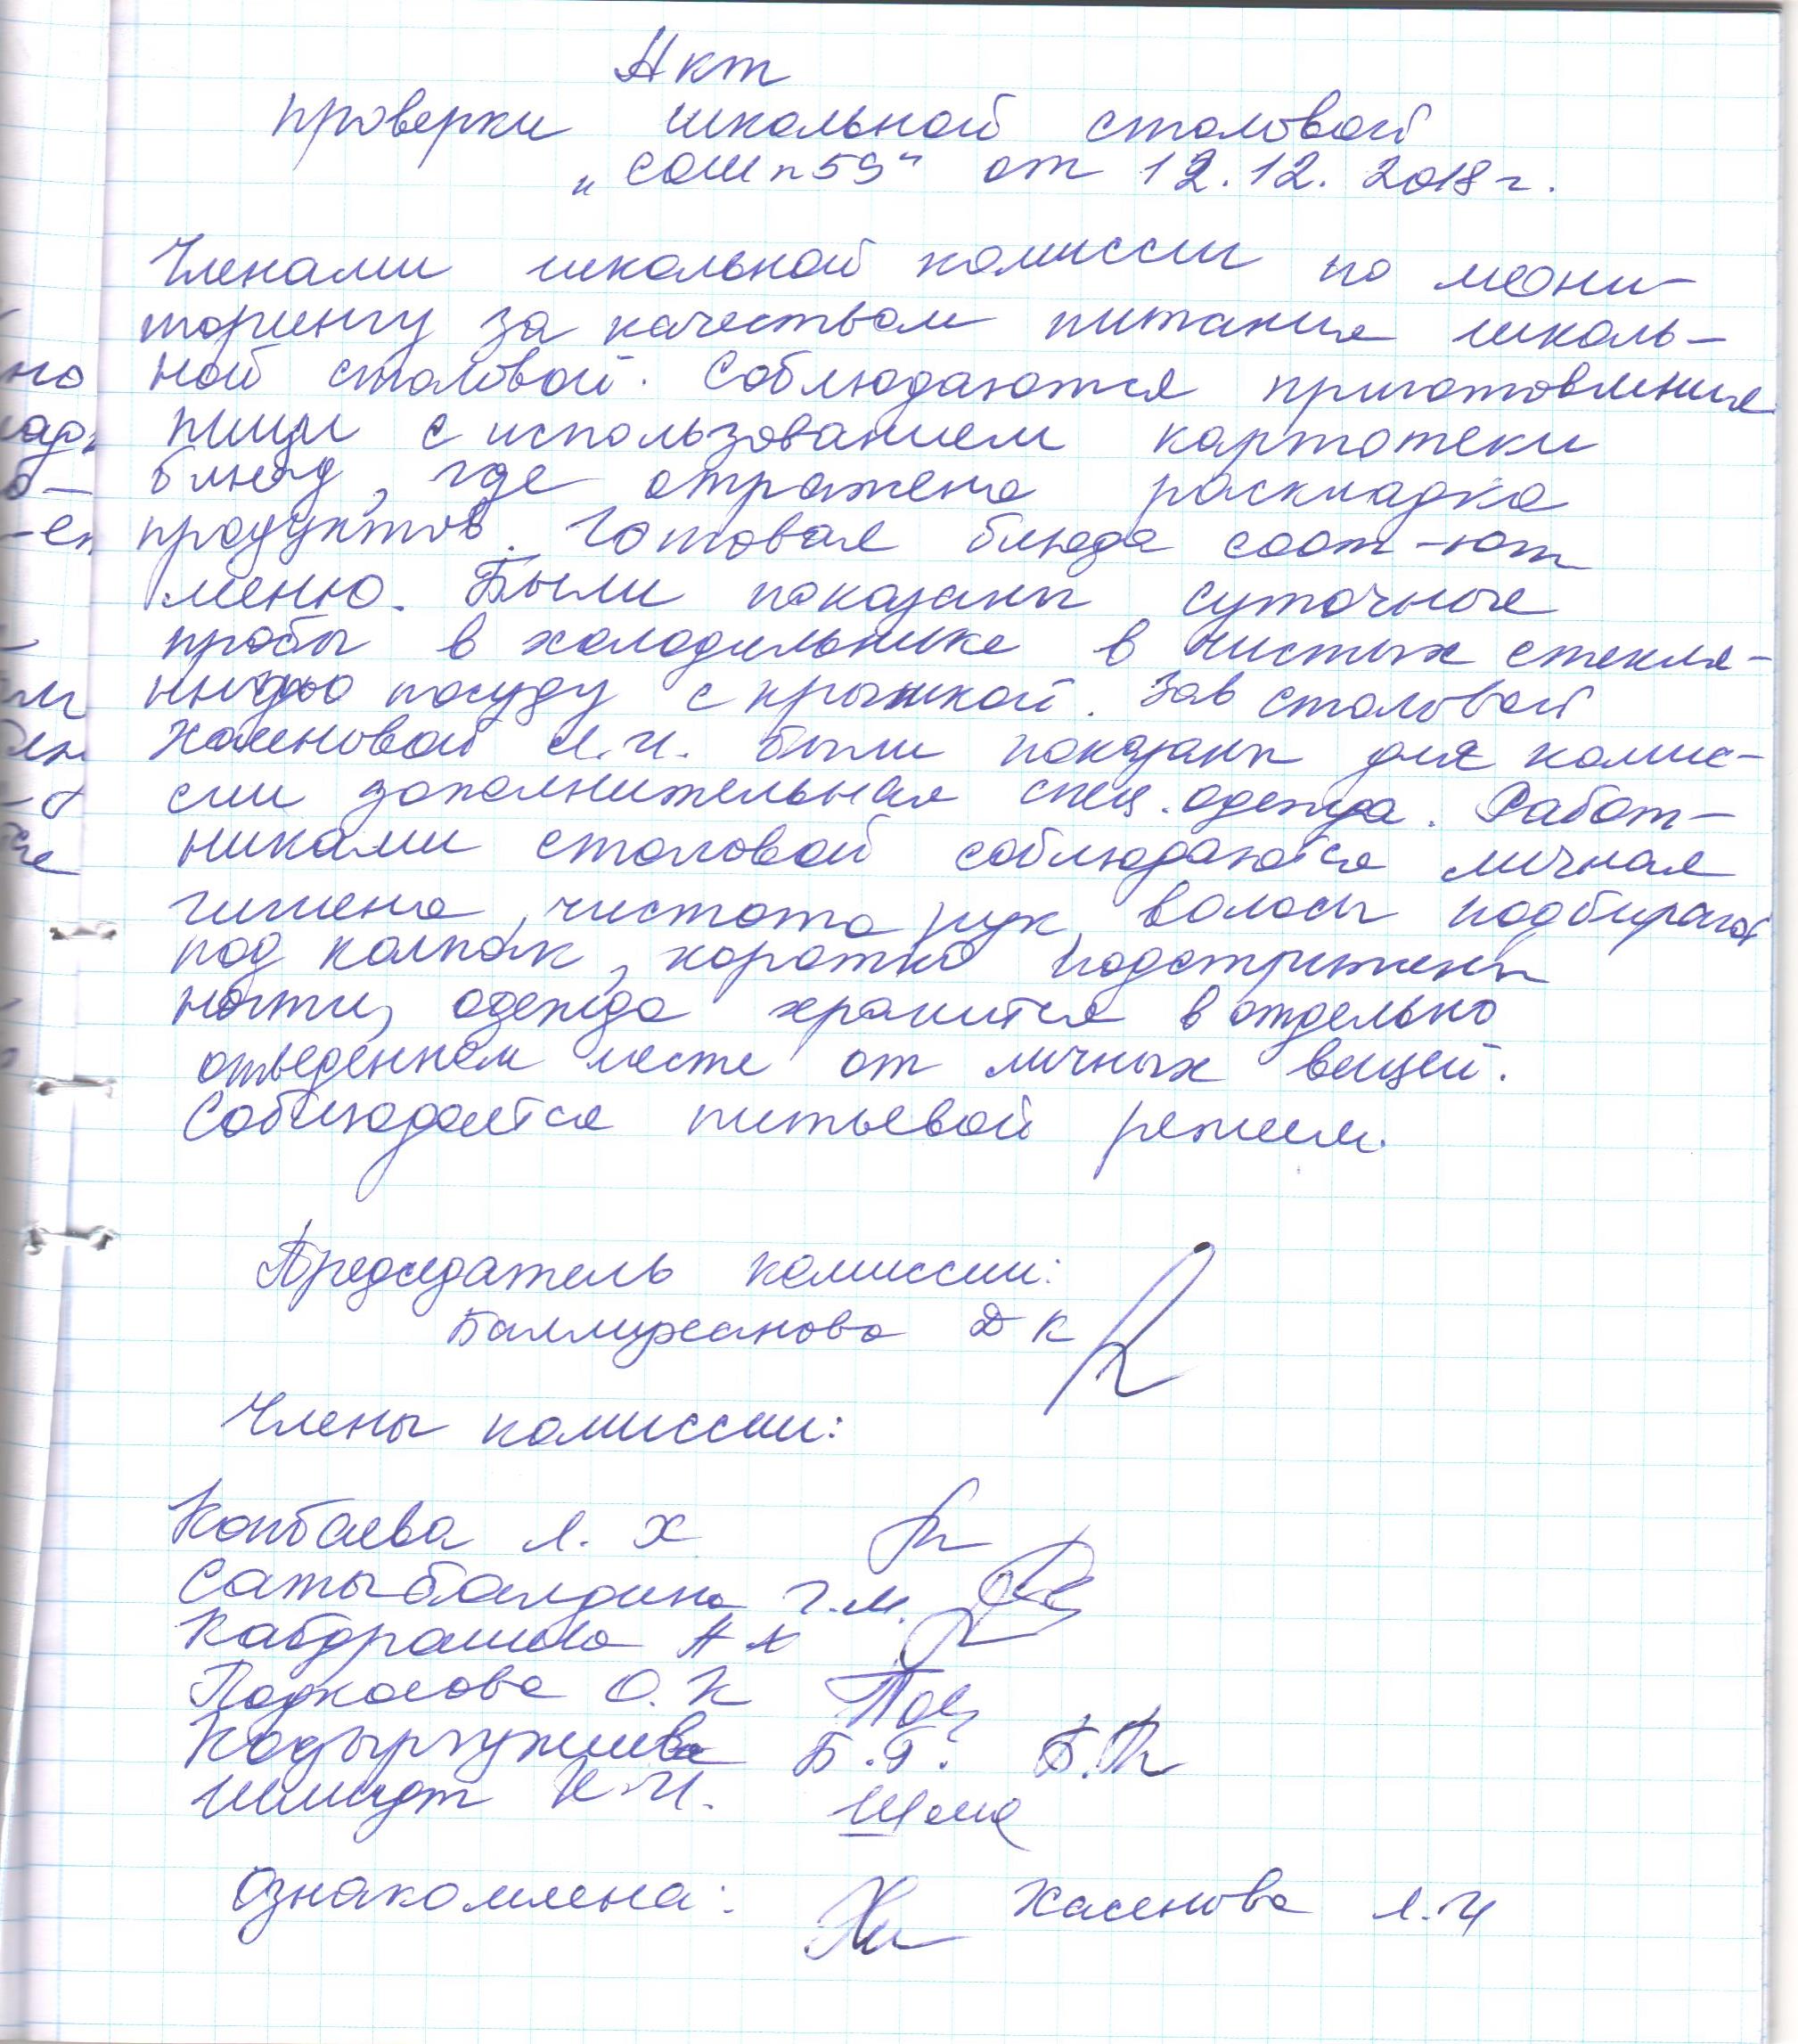 Акт
проверки школьной столовой
„СОШ n 59“ от 12.12.2018 г.
Членами школьной комиссии по мони-
торингу за качеством питания школь-
ной столовой. Соблюдаются приготовления
пищи с использованием картотеки
блюд, где отражена раскладка
продуктов. Готовая блюда соот-ют
меню. Были показаны суточные
пробы в холодильнике в чистых стекля-
нную посуду с крышкой. Зав столовой
Хасеновой Л.И. были показаны для комис-
сии дополнительная спец. одежда. Работ-
никами столовой соблюдаются личная
гигиена, чистота рук, волосы подбирают
под колпак, коротко подстрижены
ногти, одежда хранится в отдельно
отведенном месте от личных вещей.
Соблюдается питьевой режим.
Председатель комиссии:
Д К
Члены комиссии:
Копбаева Л. Х
Сатыбалдина Г.М.
Кабдрашева А
О. К
Б.Г.
Шмидт
Ознакомлена: Хасенова Л.И
но